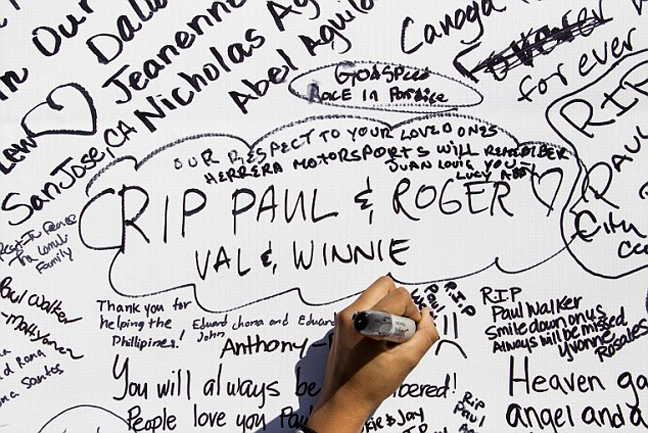 in Our
Dalla
Jeanenne
Nicholas Ag
Abel Aguila
Canoga
forever
San Jose, CA
GODSPEED
RACE IN Paradise
OUR RESPECT TO YOUR LOVED ONES
HERRERA MOTORSPORTS WILL REMEMBER
JUAN LOUIS YOU-
LUCY ABBY
RIP PAUL & ROGER
VAL & WINNIE
RIP
PAUL
City
Rest In Peace
Family
Paul Walker
Santos
Thank you for
helping the
Phillipines!
Eduard Jhona and Eduard
John
Anthony-
R.I.P
Paul
RIP
Paul Walker
Smile down on us
Always will be missed
Yvonne
Rosales
You will always be
bered!
People love you Pau
& Jay
RIP
Paul
Heaven ga
angel and a